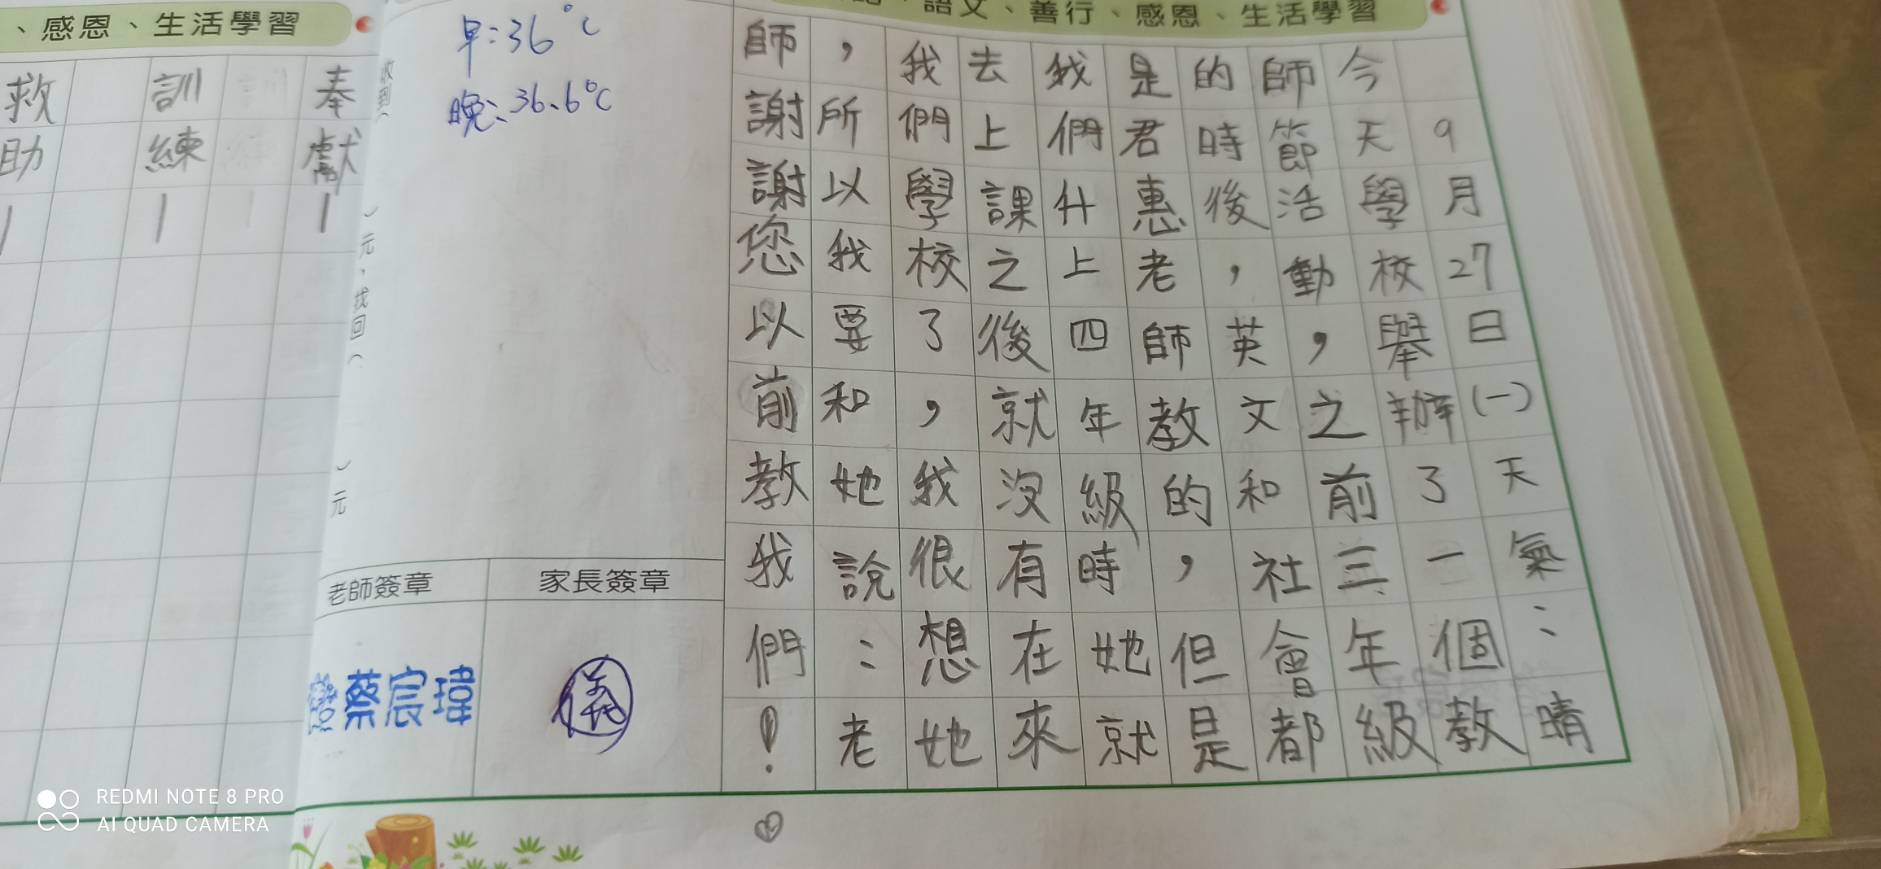 語文、善行、感恩、生活學習
9月27日(一)天氣:晴
今天學校舉辦了一個教
師節活動,之前三年級
的時後,英文和社會都
是君惠老師教的,但是
我們升上四年級時她就
去上課之後就沒有在來
我們學校了,我很想她
,所以我要和她說:老
師謝謝您以前教我們!
早:36°C
晚:36.6°C
)元,找回(
)元
老師簽章
家長簽章
蔡宸瑋
儀
、感恩、生活學習
奉獻1
訓練1
救助1
REDMI NOTE 8 PRO
AI QUAD CAMERA